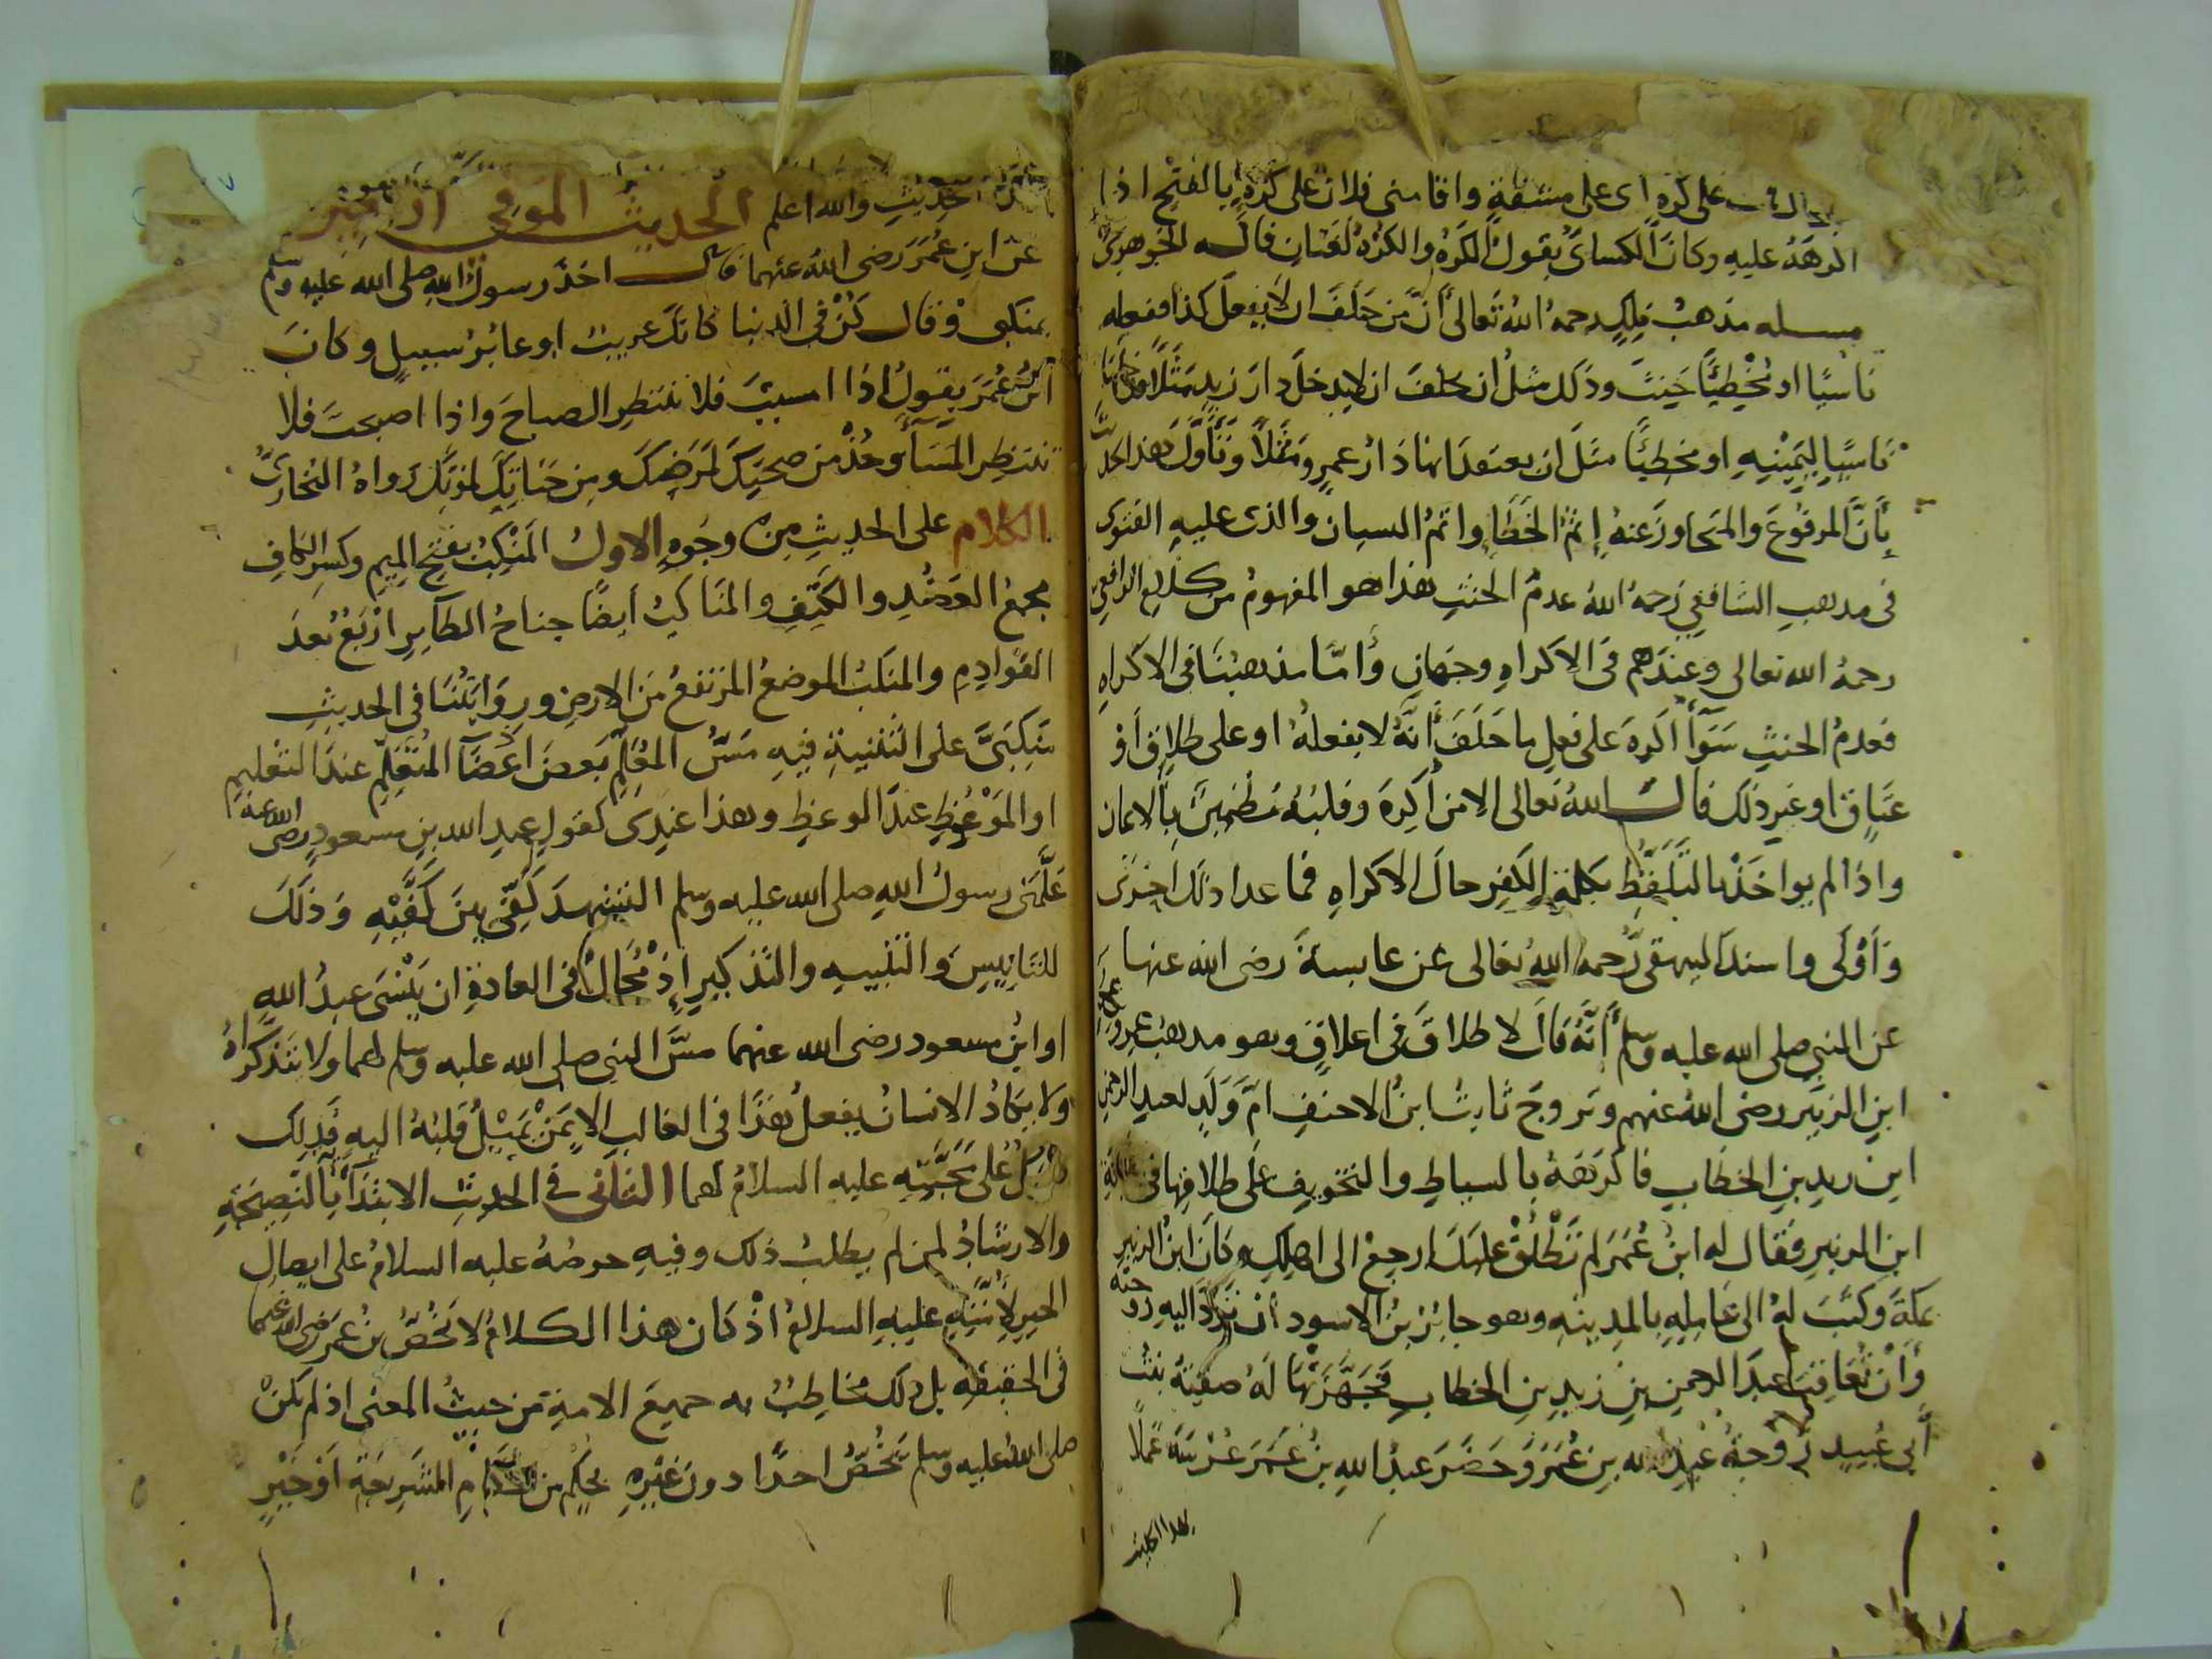 على كره اى على مشقة واقامنى فلان على كره بالفتح اذا
اكرهك عليه وكان الكساى يقول الكره والكره لغتان قاله الجوهرى
مسله مذهب ملك رحمه الله تعالى ان من حلف ان لا يفعل كذا ففعله
ناسيا او مخطيا حنث وذلك مثل ان حلف ان لا يدخل دار زيد مثلا
ناسيا ليمينه او مخطيا مثل ان يعتقد انها دار عمرو مثلا وتاول هذا الحديث
بان المرفوع والمتجاوز عنه اثم الخطا واثم النسيان والذى عليه الفتوى
فى مذهب الشافعى رحمه الله عدم الحنث هذا هو المفهوم من كلام الرافعى
رحمه الله تعالى وعندهم فى الاكراه وجهان واما مذهبنا فى الاكراه
فعدم الحنث سوآ اكره على فعل ما حلف انه لا يفعله او على طلاق او
عتاق او غير ذلك قال الله تعالى الا من اكره وقلبه مطمين بالايمان
واذا لم يواخذ بالتلفظ بكلمة الكفر حال الاكراه فما عدا ذلك احرى
واولى واسند البيهقى رحمه الله تعالى عن عايشة رضى الله عنها
عن النبى صلى الله عليه وسلم انه قال لا طلاق فى اغلاق وهو مذهب عمر
ابن الزبير رضى الله عنهم وتزوج ثابت ابن الاحنف ام ولد لعبد الرحمن
ابن زيد بن الخطاب فاكرهه بالسياط والتخويف على طلاقها فى خلافة
ابن الزبير فقال له ابن عمر لم تطلق عليك ارجع الى اهلك وكان ابن الزبير
بمكة وكتب له الى عامله بالمدينه وهو جابر بن الاسود ان ترد اليه زوجته
وان تعاقب عبد الرحمن بن زيد بن الخطاب فجهزتها له صفية بنت
ابى عبيد زوجة عبد الله بن عمر وحضر عبد الله بن عمر عرسه عملا
بهذا الحديث
الحديث والله اعلم الحديث الموفى اربعين
عن ابن عمر رضى الله عنهما قال اخذ رسول الله صلى الله عليه وسلم
بمنكبى وقال كن فى الدنيا كانك غريب او عابر سبيل وكان
ابن عمر يقول اذا امسيت فلا تنتظر الصباح واذا اصبحت فلا
تنتظر المسآ وخذ من صحتك لمرضك ومن حياتك لموتك رواه البخارى
الكلام على الحديث من وجوه الاول المنكب بفتح الميم وكسر الكاف
مجمع العضد والكتف والمناكب ايضا جناح الطآير اربع بعد
القوادم والمنكب الموضع المرتفع من الارض وروايتنا فى الحديث
منكبى على التثنية فيه مس المعلم بعض اعضآ المتعلم عند التعليم
او الموعظ عند الوعظ وهذا عندى كقول عبد الله بن مسعود رضى الله عنه
علمنى رسول الله صلى الله عليه وسلم التشهد كفى بين كفيه وذلك
للتانيس والتنبيه والتذكير اذ محال فى العادة ان ينسى عبد الله
او ابن مسعود رضى الله عنهما مس النبى صلى الله عليه وسلم لهما ولا يتذكراه
ولا يكاد الانسان يفعل هذا فى الغالب الا بمن يميل قلبه اليه فذلك
على محبته عليه السلام لهما الثانى فى الحديث الابتدآ بالنصيحة
والارشاد لمن لم يطلب ذلك وفيه حرصه عليه السلام على ايصال
الخير لامته عليه السلام اذ كان هذا الكلام لا يخص بن عمر رضى الله عنهما
فى الحقيقة بل ذلك مخاطب به جميع الامة من حيث المعنى اذ لم يكن
صلى الله عليه وسلم يخص احدا دون غيره بحكم من احكام الشريعة او خير